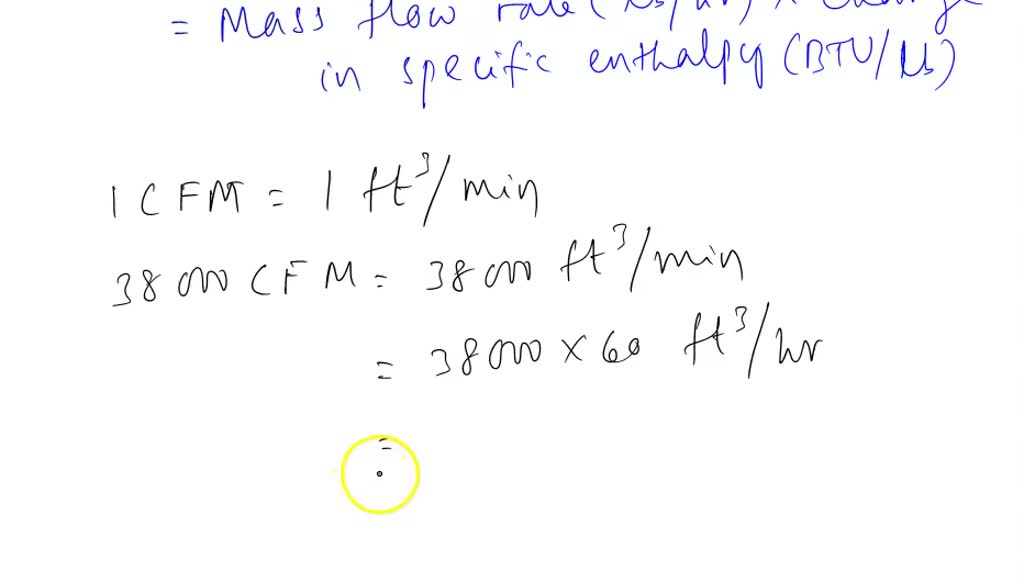 = Mass flow rate (lbs/hr) × change
in specific enthalpy (BTU/lb)
1 CFM = 1 ft³/min
38000 CFM = 38000 ft³/min
= 38000 × 60 ft³/hr
=